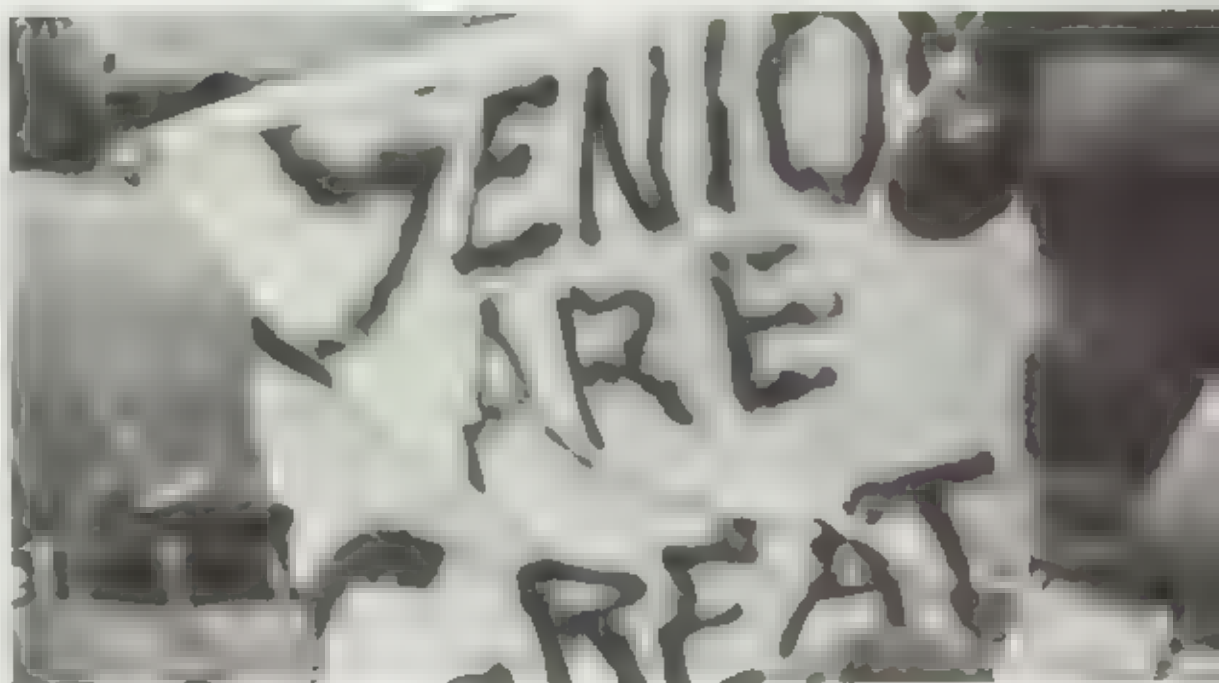 SENIO
ARE
GREAT